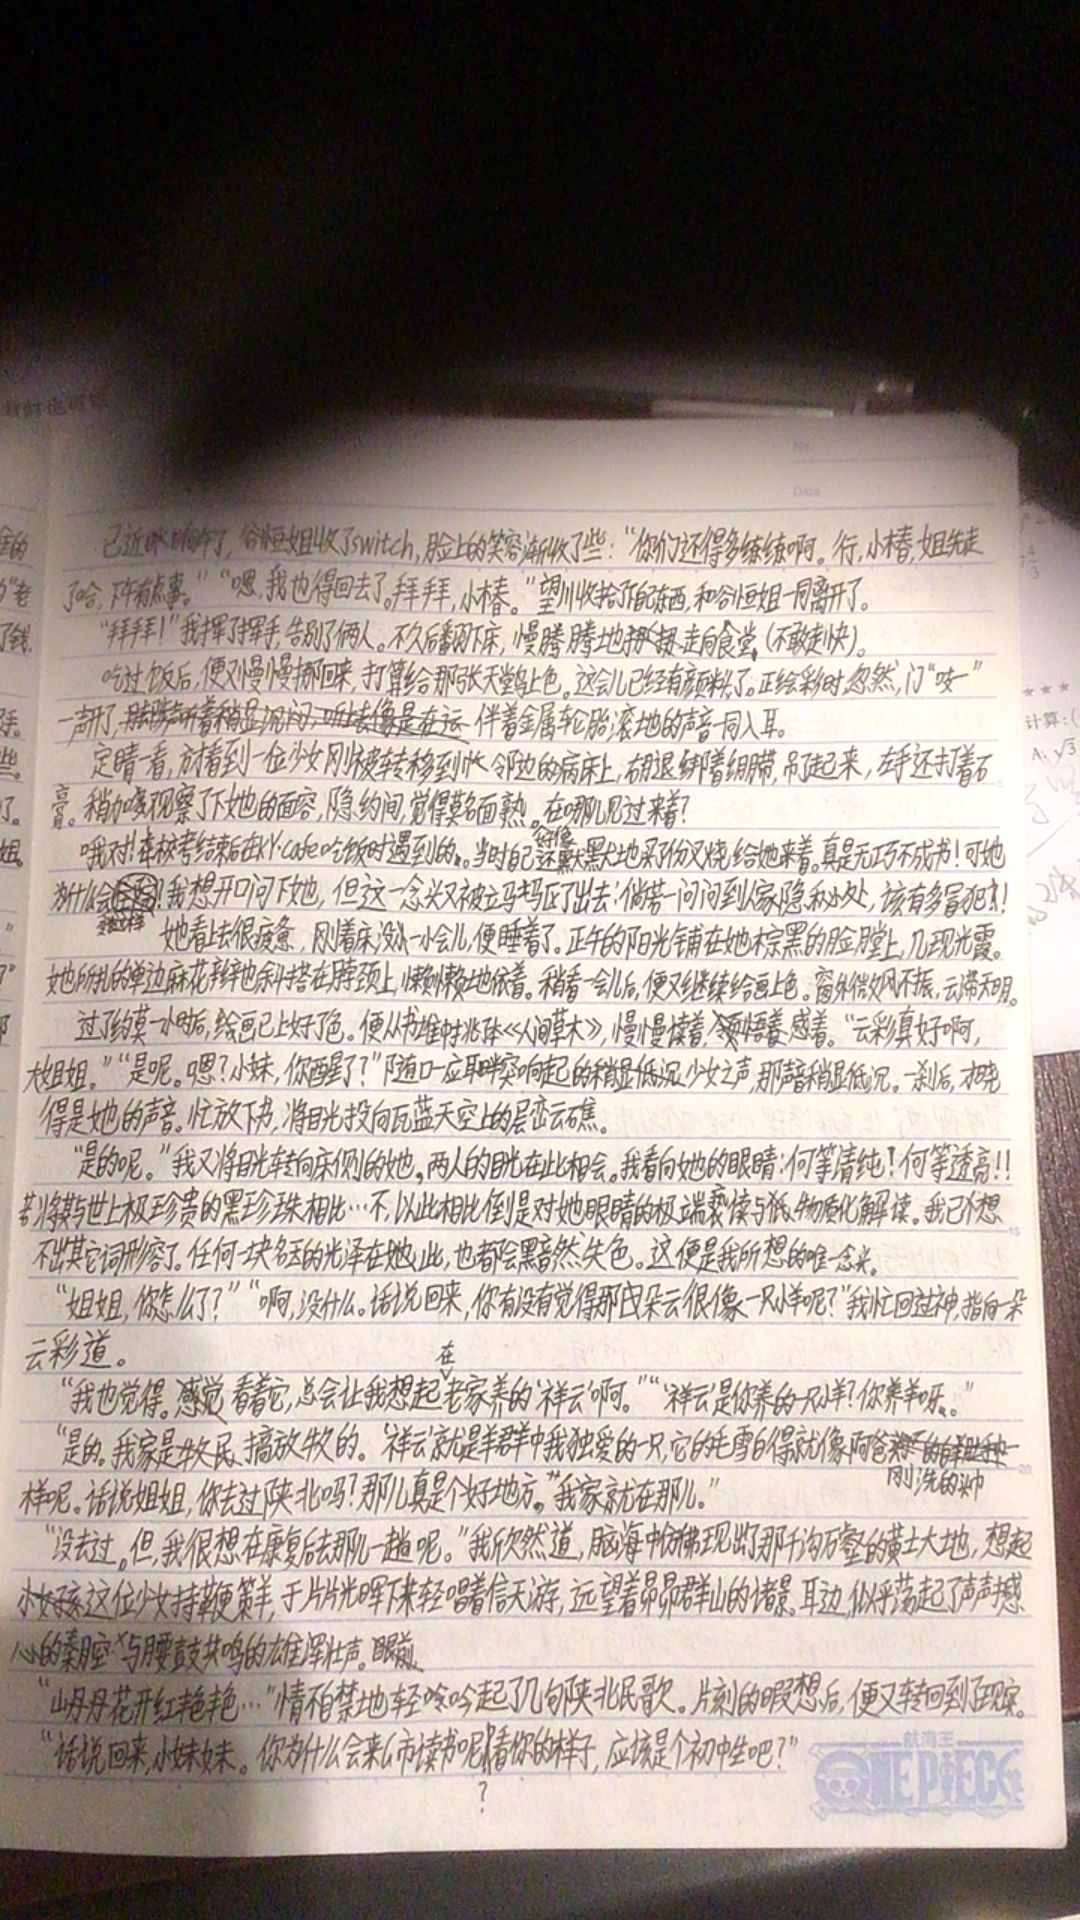 已近晌午了，谷恒姐收了switch，脸上的笑容渐收了些：“你们还得多练练啊。行，小椿，姐先走
了哈，下午有点事。”“嗯，我也得回去了。拜拜，小椿。”望川收拾了下自己东西，和谷恒姐一同离开了。
“拜拜！”我挥了挥手，告别了俩人。不久后翻下床，慢腾腾地走向食堂（不敢走快）。
吃过饭后，便又慢慢挪回来，打算给那张天堂鸟上色。这会儿已经有颜料了。正绘彩时，忽然，门“吱一”
一声开了，伴着金属轮胎滚地的声音一同入耳。
定睛一看，方才看到一位少女刚被转移到邻边的病床上，右腿绑着绷带，吊起来，左手还打着石
膏。稍加观察了下她的面容，隐约间，觉得莫名面熟。在哪儿见过来着？
哦对！本校考结束后在KY·cafe吃饭时遇到的。当时自己好像还默默地买份叉烧给她来着。真是无巧不成书！可她
为什么会变这样！我想开口问下她，但这一念头又被立马打了出去：倘若一问问到人家隐私处，该有多冒犯！
她看上去很疲惫，刚着床没一小会儿，便睡着了。正午的阳光铺在她棕黑的脸膛上，几现光霞。
她所扎的单边麻花辫也斜搭在脖颈上，懒懒地依着。稍看一会儿后，便又继续给画上色。窗外微风不振，云滞天明。
过了约莫一小时后，绘画已上好了色。便从书堆中抽本《人间草木》，慢慢读着，领悟着，感着。“云彩真好啊，
大姐姐。”“是呢。嗯？小妹，你醒了？”随口一应耳畔突响起的少女之声，那声音稍显低沉。一刹后，才晓
得是她的声音。忙放下书，将目光投向瓦蓝天空上的层峦云礁。
“是的呢。”我又将目光转向床侧的她。两人的目光在此相会。我看向她的眼睛：何等清纯！何等透亮！！
若将其与世上极珍贵的黑珍珠相比…不，以此相比倒是对她眼睛的极端亵渎与低物质化解读。我已想
不出其它词形容了。任何一块名玉的光泽在她此，也都会黯然失色。这便是我所想的唯一念头。
“姐姐，你怎么了？”“啊，没什么。话说回来，你有没有觉得那朵云很像一只小羊呢？”我忙回过神，指向一朵
云彩道。
“我也觉得。感觉看着它，总会让我想起在老家养的‘祥云’啊。”“‘祥云’是你养的一只小羊？你养羊呀。”
“是的。我家是牧民，搞放牧的。‘祥云’就是羊群中我独爱的一只，它的毛雪白得就像阿爸刚洗的头巾一
样呢。话说姐姐，你去过陕北吗？那儿真是个好地方。我家就在那儿。”
“没去过。但我很想在康复后去那儿一趟呢。”我欣然道，脑海中仿佛现出了那千沟万壑的黄土大地，想起
这位少女持鞭策羊，于片片光晖下来轻唱着信天游，远望着昂昂群山的诸景。耳边，似乎荡起了声声撼
心的秦腔与腰鼓共鸣的雄浑壮声。
“山丹丹花开红艳艳…”情不自禁地轻吟起了几句陕北民歌。片刻的暇想后，便又转回到了现实。
“话说回来，小妹妹。你为什么会来市读书呢？看你的样子，应该是个初中生吧？”
航海王
ONE PIECE
Date
计算：(